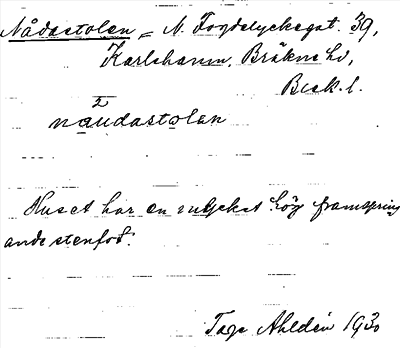 Nådastolen = N. Fogdelyckegat. 39,
Karlshamn, Bräkne hd,
Blek. l.
2
naudastolen
Huset har en mycket hög framspring
ande stenfot.
Tage Ahldén 1930